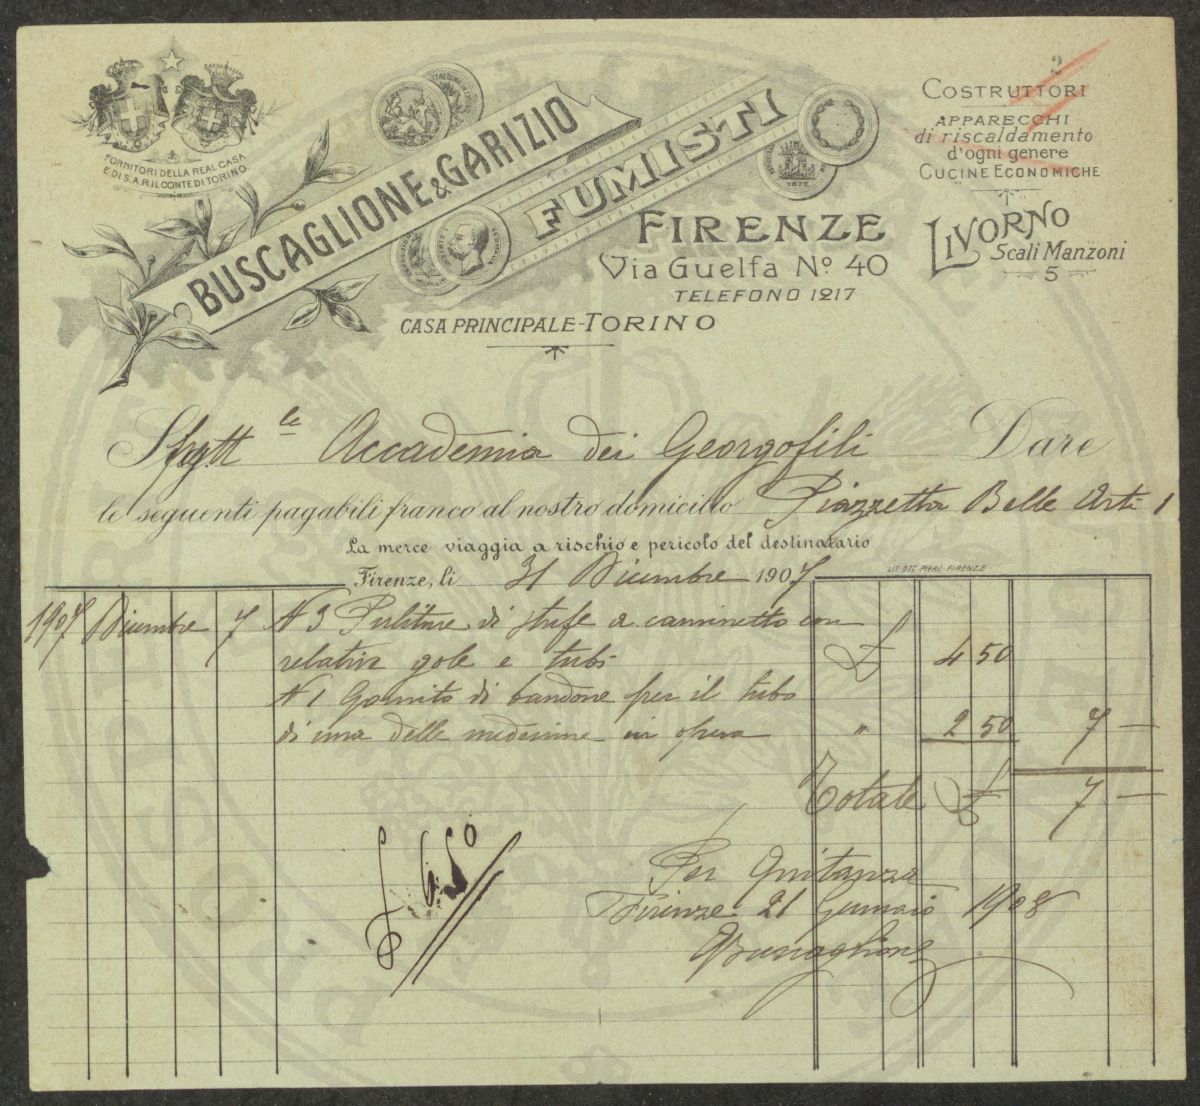 2
FORNITORI DELLA REAL CASA
E DI S.A.R. IL CONTE DI TORINO
BUSCAGLIONE & GARIZIO
FUMISTI
FIRENZE
Via Guelfa No. 40
TELEFONO 1217
CASA PRINCIPALE-TORINO
COSTRUTTORI
APPARECCHI
di riscaldamento
d'ogni genere
CUCINE ECONOMICHE
LIVORNO
Scali Manzoni
5
Spgtt le Accademia dei Georgofili Dare
le seguenti pagabili franco al nostro domicilio Piazzetta Belle Arti 1
La merce viaggia a rischio e pericolo del destinatario
Firenze, li 31 Dicembre 1907
LIT. OTT. PIERI-FIRENZE
1907 Dicembre 7 N 3 Puliture di stufe a caminetto con
relativa gole e tubi £ 4 50
N 1 Gomito di bandone per il tubo
di una delle medesime in opera " 2 50 7 —
Totale £ 7 —
£ 6.50
Per Quitanza
Firenze 21 Gennaio 1908
Buscaglione